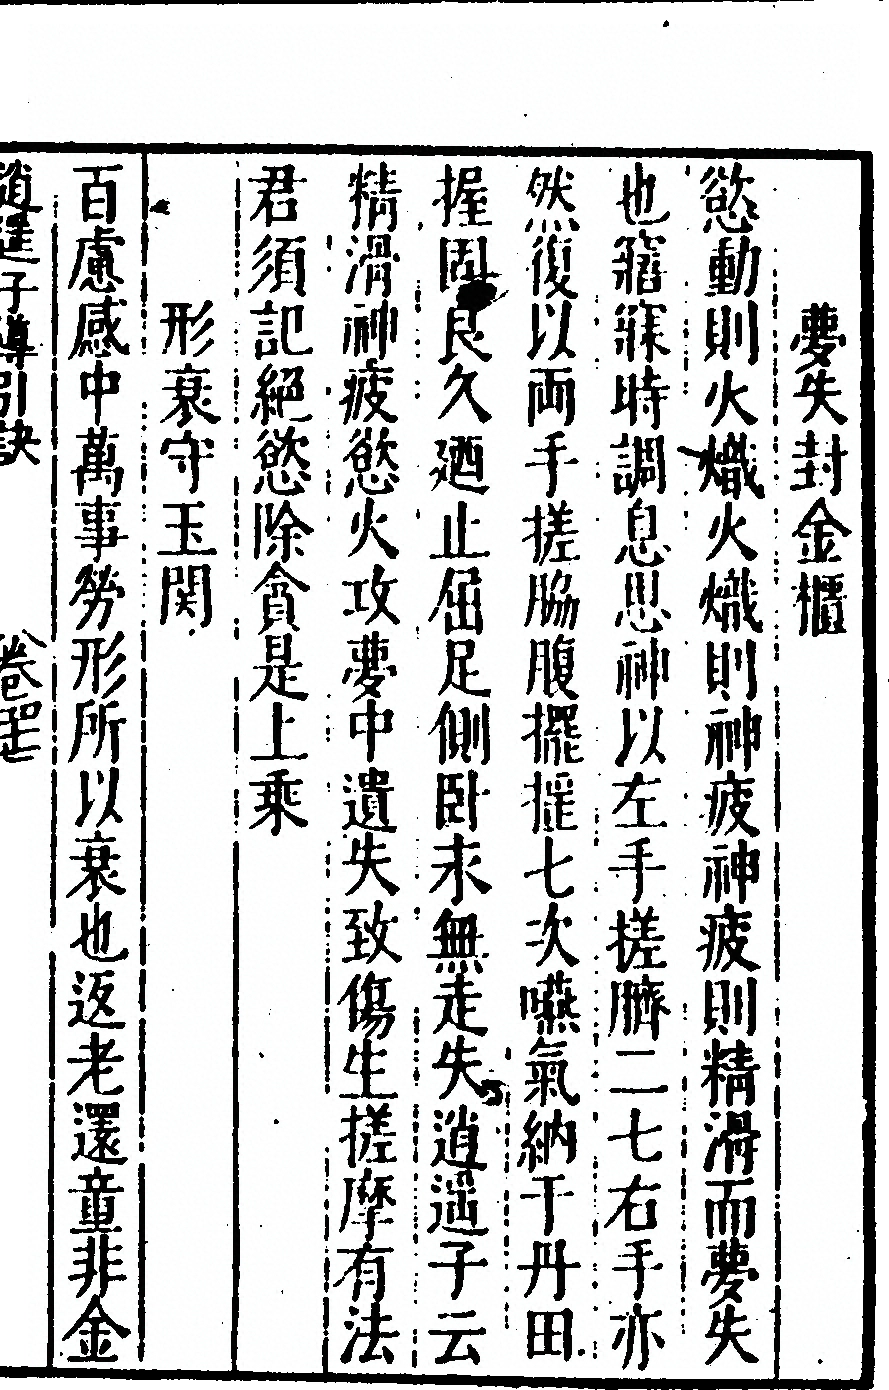 夢失封金櫃
慾動則火熾火熾則神疲神疲則精滑而夢失
也寤寐時調息思神以左手搓臍二七右手亦
然復以兩手搓脇腹擺搖七次嚥氣納于丹田
握固良久廼止屈足側臥永無走失逍遥子云
精滑神疲慾火攻夢中遺失致傷生搓摩有法
君須記絕慾除貪是上乘
形衰守玉関
百慮感中萬事勞形所以衰也返老還童非金
逍遥子導引訣